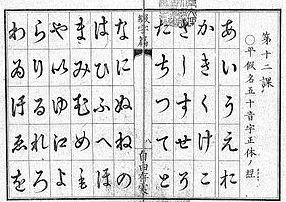 第十二課
〇平假名五十音字正体ノ
あいうえお
かきくけこ
さしすせそ
たちつてと
綴字篇
八
なにぬねの
はひふへほ
まみむめも
や以ゆ江よ
らりるれろ
わゐ汙ゑを